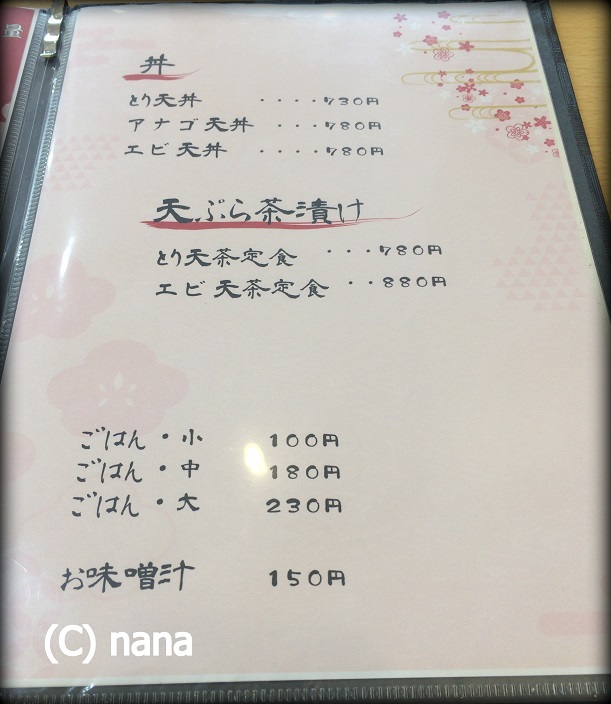 量
丼
とり天丼 ････730円
アナゴ天丼 ････780円
エビ天丼 ････780円
天ぷら茶漬け
とり天茶定食 ･･･780円
エビ天茶定食 ･･880円
ごはん・小 100円
ごはん・中 180円
ごはん・大 230円
お味噌汁 150円
(C) nana